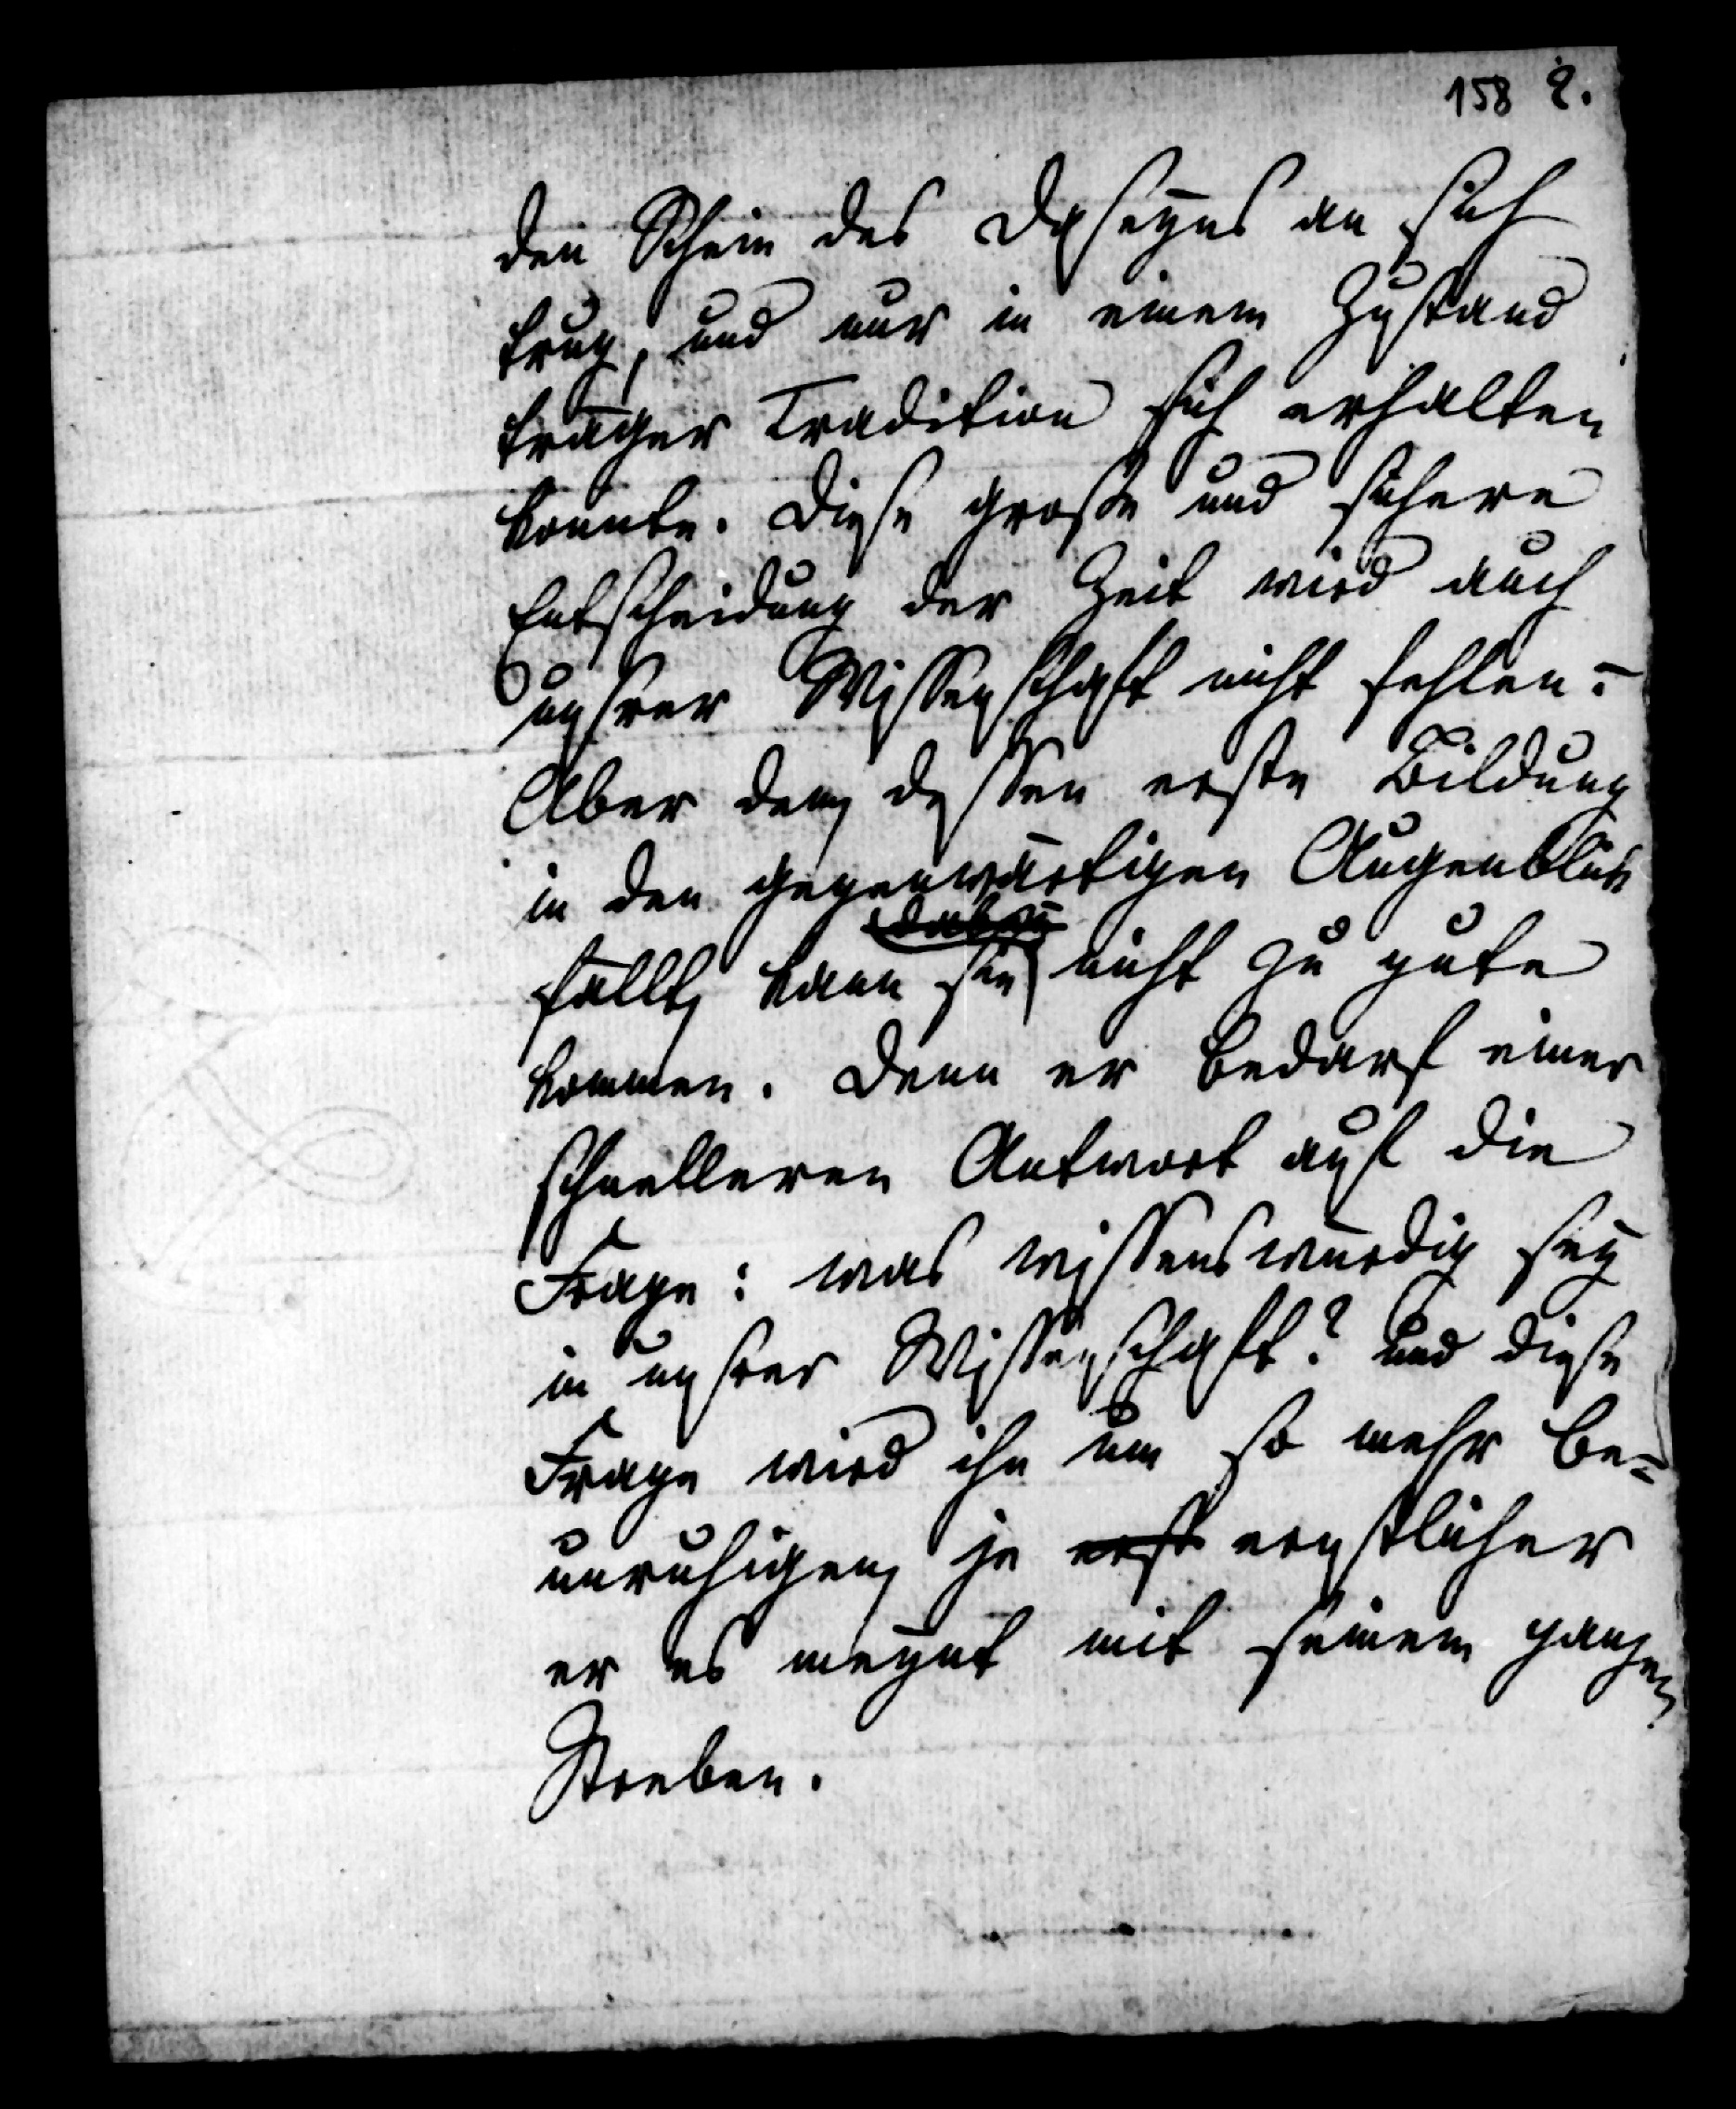 158 2.
den Schein des Daseyns an sich
trug, und nur in einem Zustand
träger Tradition sich erhalten
konnte. Diese große und sichere
Entscheidung der Zeit wird auch
unsrer Wissenschaft nicht fehlen:
Aber dem, dessen erste Bildung
in den gegenwärtigen Augenblick
fällt, kann sie nicht zu gute
kommen. Denn er bedarf einer
schnelleren Antwort auf die
Frage: was wissenswürdig sey
in unsrer Wissenschaft? und diese
Frage wird ihn um so mehr be-
unruhigen, je erst ernstlicher
er es meynt mit seinem ganzen
Streben.